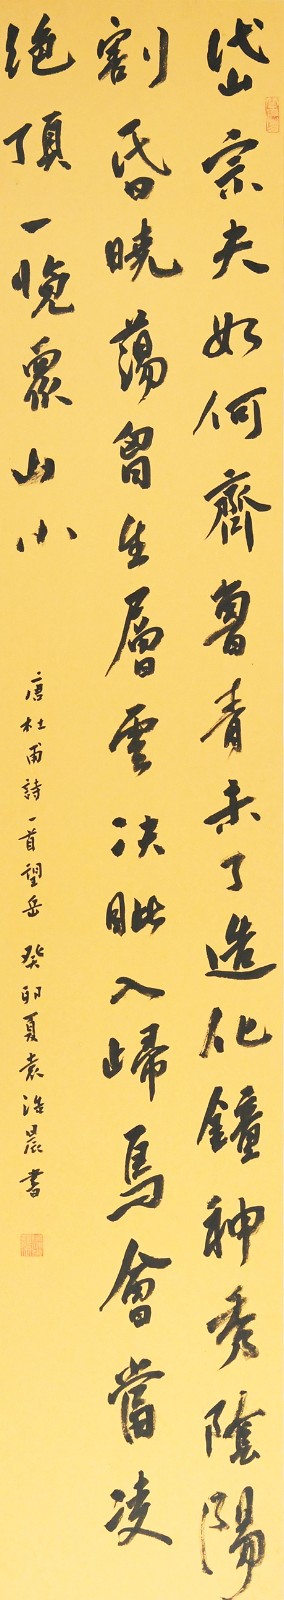 岱宗夫如何齊魯青未了造化鐘神秀陰陽
割昏曉蕩胷生層雲决眦入歸鳥會當凌
絶頂一覽衆山小
唐杜甫詩一首望岳 癸卯夏袁浩晨書